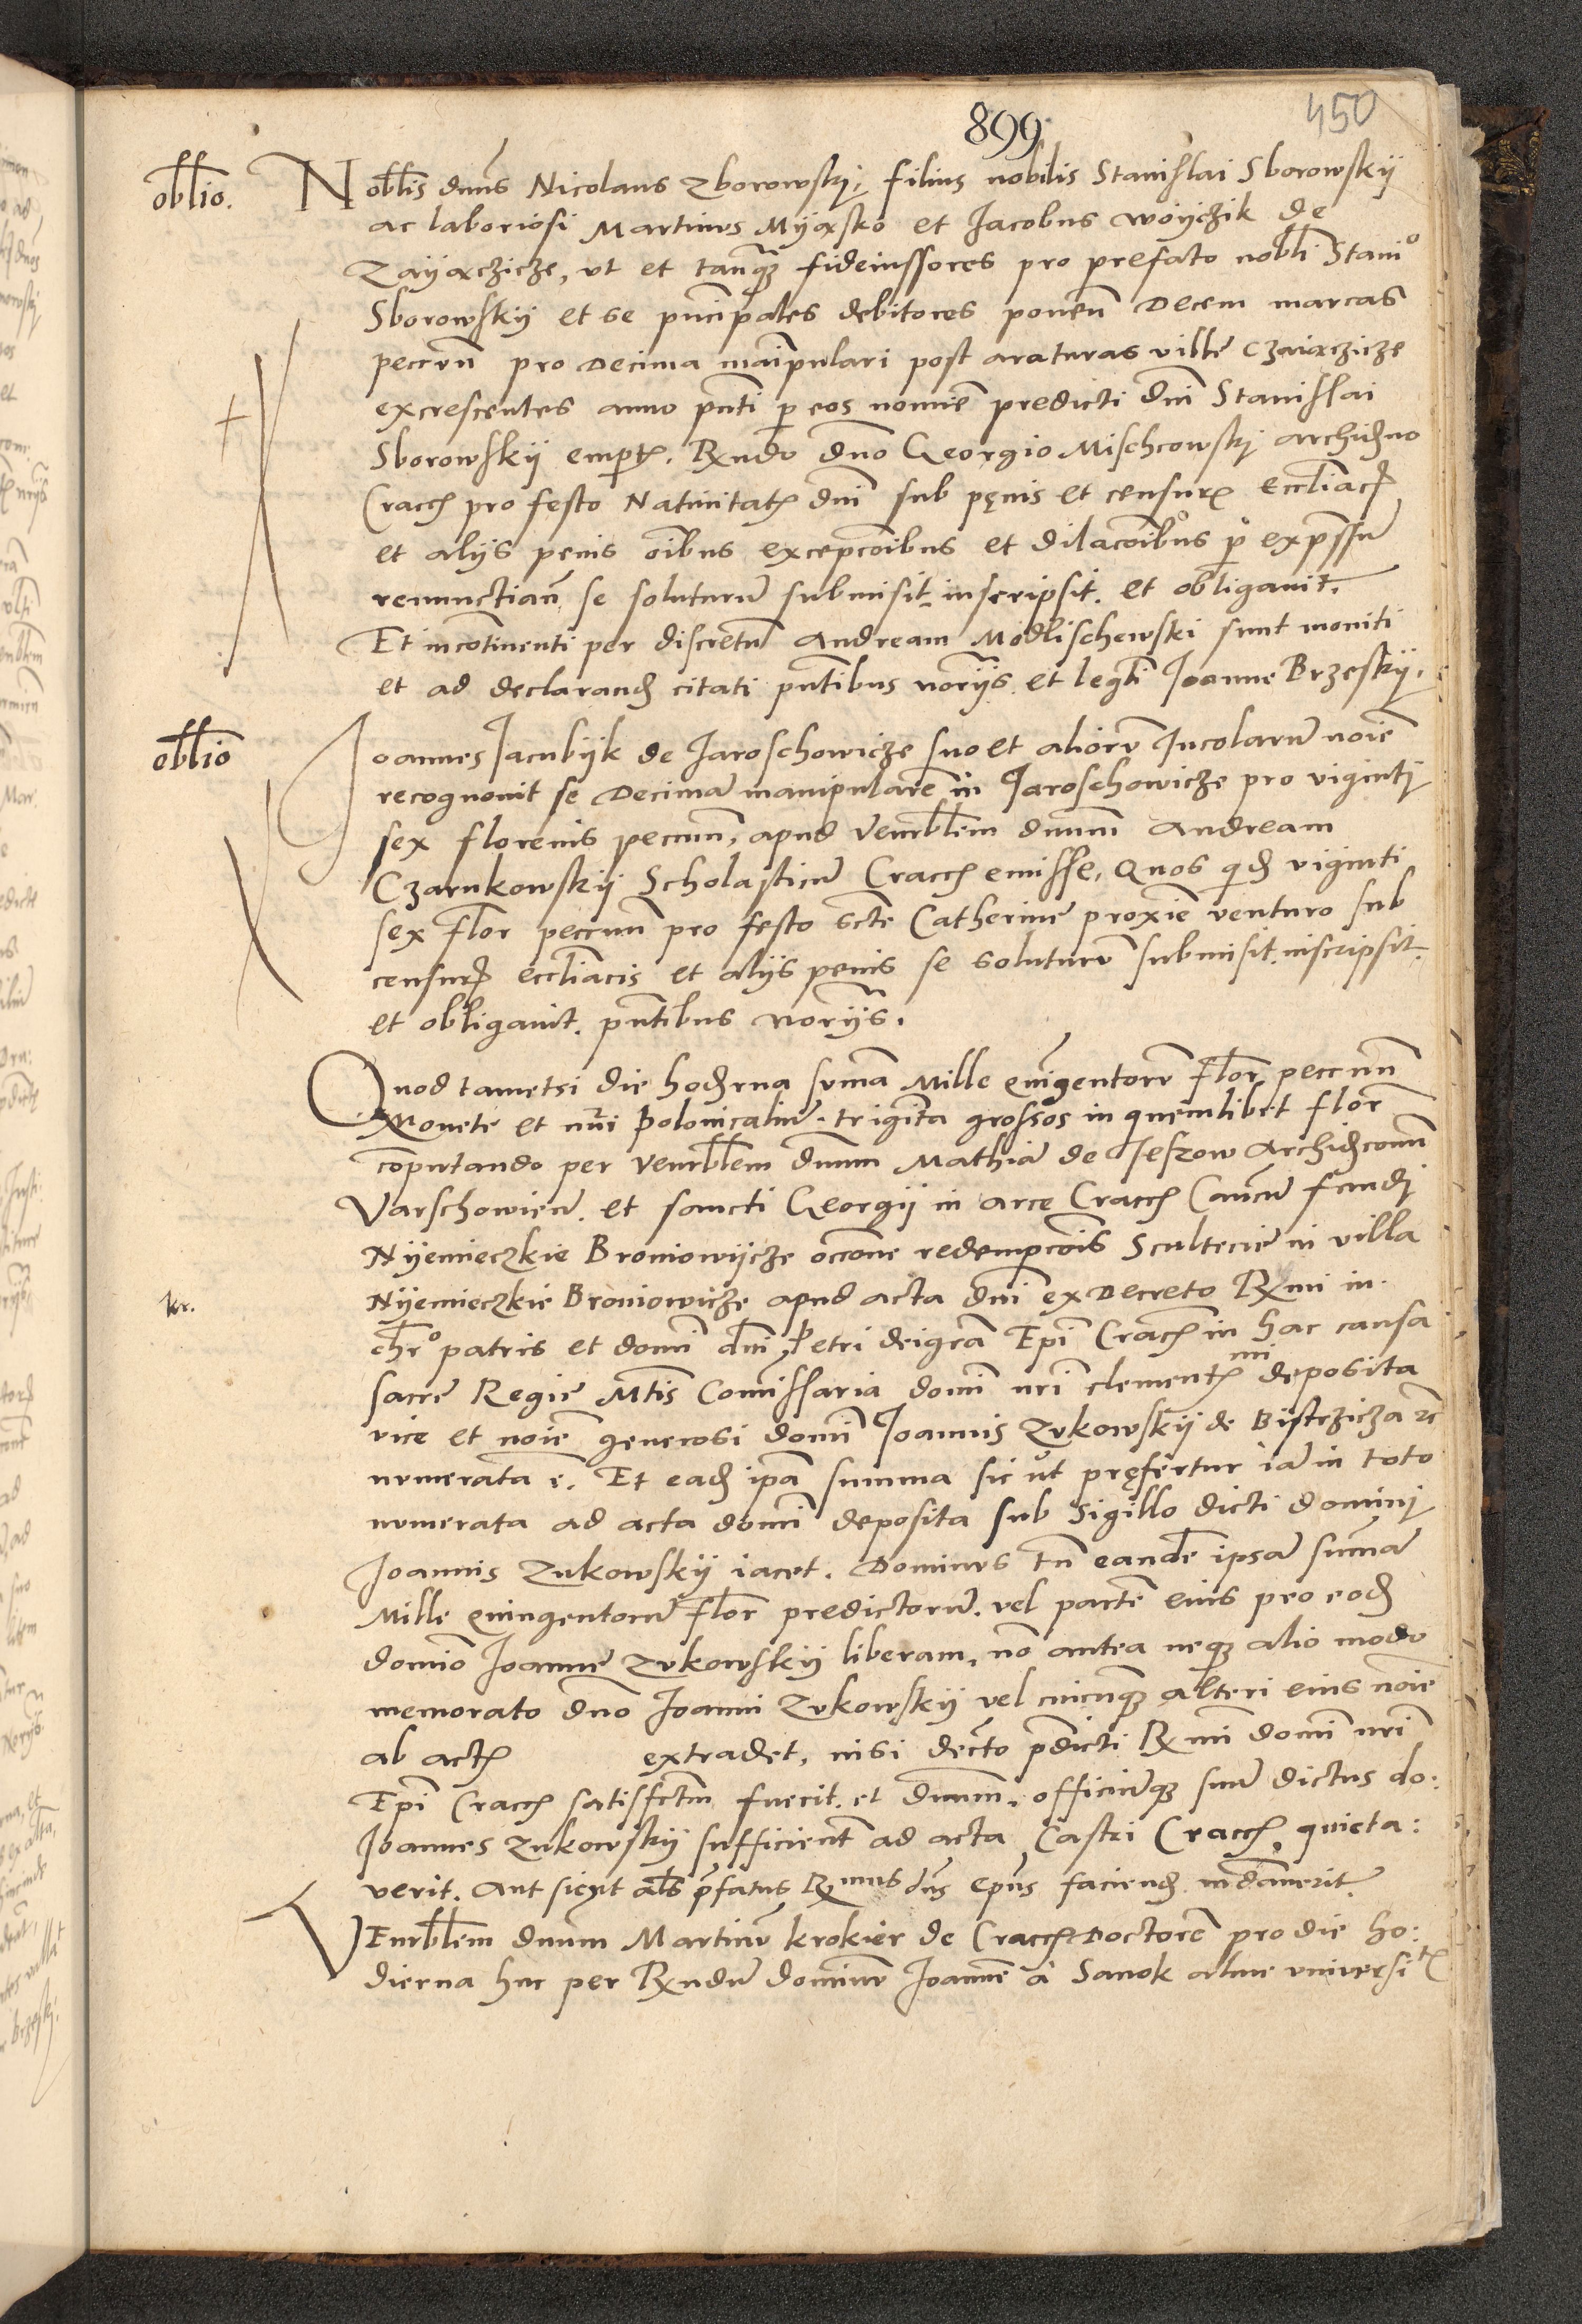 899
450
obllio. Nobllis dnns Nicolaus Zborowskj, filius nobilis Stanislai Sborowskij
ac laboriosi Martinus Mijasko et Jacobus woijczik de
Zaijaczicze, ut et tanqz fideiussores pro prefato nobli Stanio
Sborowskij et se pncipales debitores ponen Decem marcas
peccun pro Decima manipulari post araturas ville Czaiaczicze
excrescentes anno pnti p eos nomie predicti dni Stanislai
Sborowskij empt. Rndo dno Georgio Mischcowskj archidno
Cracc pro festo Nativitat dni sub pęnis et censur eccliac
et alijs penis oibus excepcoibus et dilacoibus p expssu
renunctian se soluturu submisit inscripsit. et obligavit.
Et incotinenti per discretu Andream Modlischewski sunt moniti
et ad declarand citati pntibus norijs et legli Joanne Brzeskij.
obllio Joannes Jacubijk de Jaroschowicze suo et alioru Incolaru noie
recognovit se Decima manipulare in Jaroschowicze pro vigintj
sex florenis pecun, apud venrbllem dnum Andream
Czarnkowskij Scholasticu Cracc emisse, Quos qid viginti
sex flor peccun pro festo scte Catherine proxie venturo sub
censur eccliacis et alijs penis se soluturu submisit. inscripsit.
et obligavit. pntibus norijs.
Quod tametsi die hoderna suma Mille quingentoru flor peccun
Monete et nri Polonicaliu. triginta grossos in quemlibet flor
coputando per venrbllem dnum Mathia de Jeszow Archidconu
Varschowien. et sancti Georgij in arce Cracc Cancu fundj
Nijemieczkie Broniowijcze occone redempcois Scultecie in villa
kr. Nijemieczkie Broniowicze apud acta dni ex Decreto Rmi in
chro patris et domi dni Petri dei gra Epi Cracc in hac causa
sacre Regie Mtis Comissaria domi nri clement mi deposita
vice et noie generosi domi Joannis Zukowskij de Bistrzicza re
numerata e. Et ead ipa summa sic ut pręfertur ia in toto
numerata ad acta domi deposita sub Sigillo dicti dominj
Joannis Zukowskij iacet. Dominus tn eande ipsa suma
Mille quingentoru flor predictoru. vel parte eius pro eod
domio Joanne Zukowskij liberam, no antea neqz alio modo
memorato dno Joanni Zukowskij vel cuicunqz alteri eius noie
ab act extradet, nisi decto pdicti Rmi domi nri
Epi Cracc satisfctm fuerit. et dnum, officiuqz suu dictus do:
Joannes Zukowskij sufficient ad acta Castri Cracc, quieta:
verit. Aut sicut als pfatus Rmus dns epus faciend mdaverit.
Venrbllem dnum Martinu krokier de Cracc Doctore pro die ho:
dierna huc per Rndu dominu Joanne à Sanok alme universit